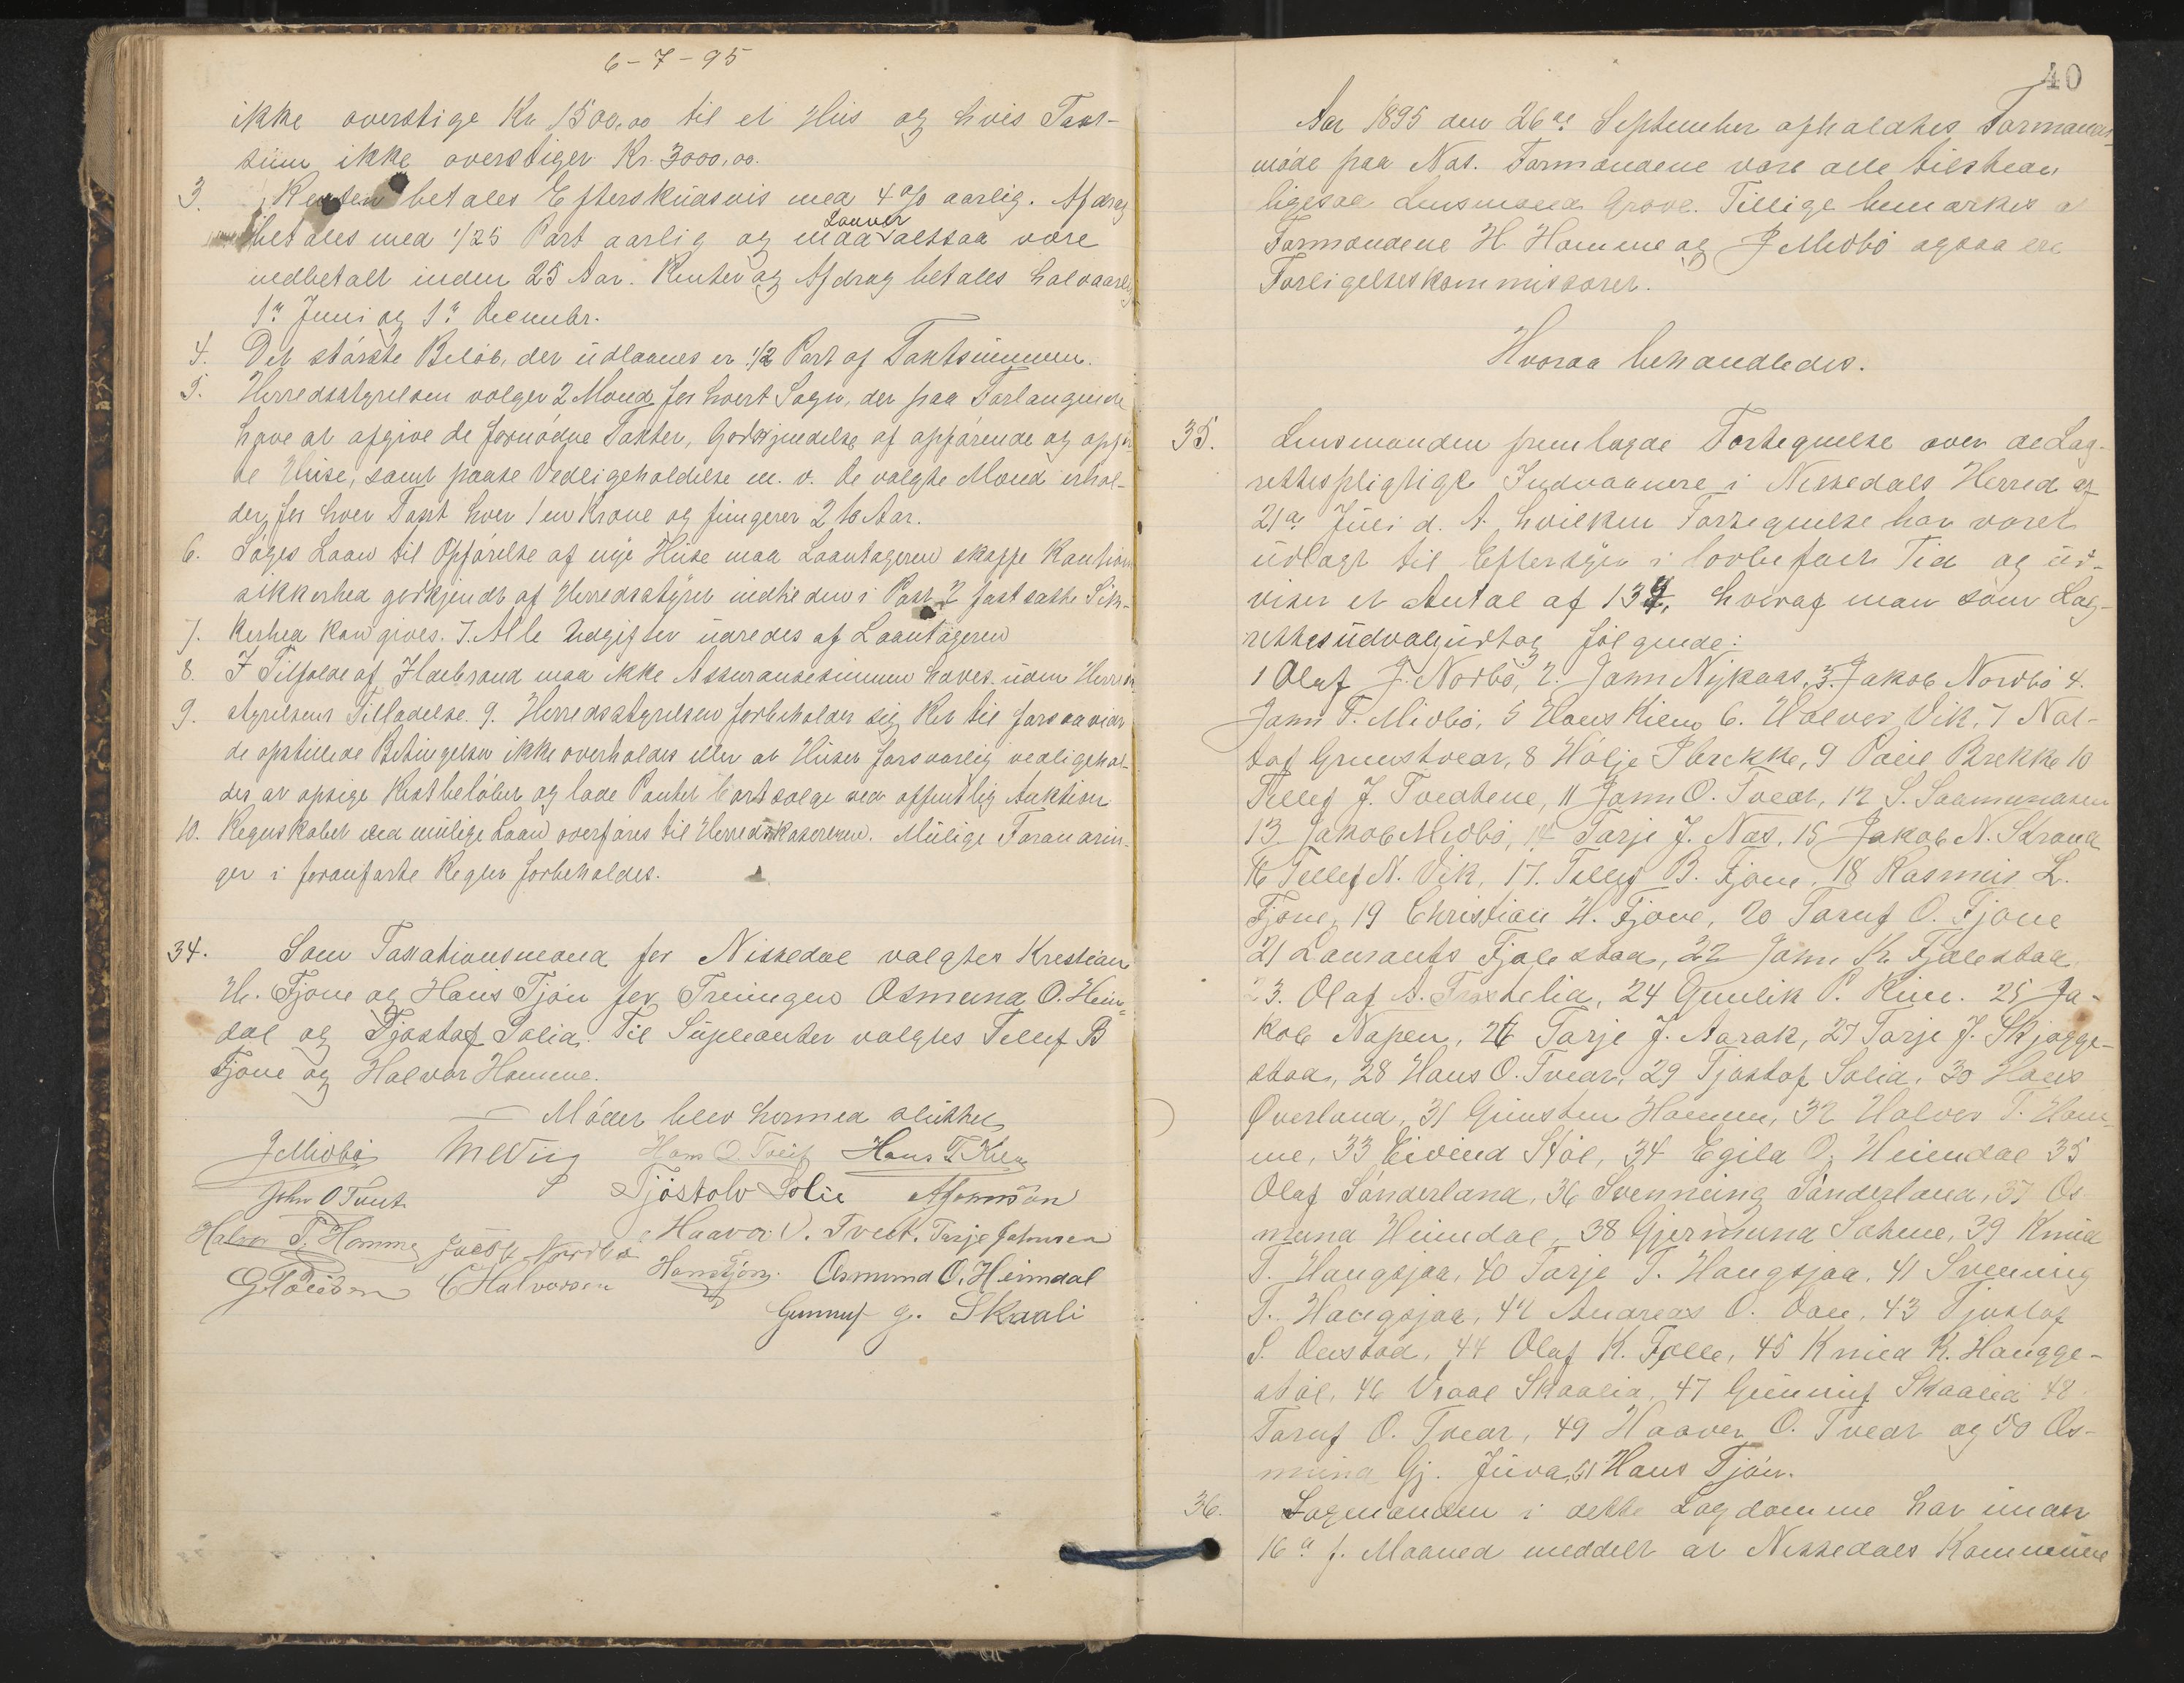 6-7-95
ikke overstige Kr 1500,00 til et Hus og hvis Taxt-
sum ikke overstiger Kr. 3000,00.
3. Renten betales Efterskudsvis med 4 % aarlig. Afdrag
betales med 1/25 Part aarlig og maa Laanet altsaa være
nedbetalt inden 25 Aar. Renter og Afdrag betales halvaarlig
1ste Juni og 1ste Decembr.
4. Det største Beløb, der udlaanes er 1/2 Part af Taxtsummen.
5. Herredsstyrelsen vælger 2 Mænd for hvert Sogn, der paa Forlangende
have at afgive de fornødne Taxter, Godkjendelse af opførende og opfør-
te Huse, samt paase Vedligeholdelse m. v. De valgte Mænd erhol-
der for hver Taxt hver 1 en Krone og fungerer 2 to Aar.
6. Søges Laan til Opførelse af nye Huse maa Laantageren skaffe Kautions
sikkerhed godkjendt af Herredsstyret indtil den i Post 2 fastsatte Sik-
7. kerhed kan gives. 7. Alle Udgifter udredes af Laantageren
8. I Tilfælde af Ildebrand maa ikke Assurancesummen hæves uden Herreds-
9. styrelsens Tilladelse. 9. Herredsstyrelsen forbeholder sig Ret til forsaavidt
de opstillede Betingelser ikke overholdes eller at Huset forsvarlig vedligehol-
des at opsige Restbeløbet og lade Pantet bortsælge ved offentlig Auktion
10. Regnskabet ved mulige Laan overføres til Herredskassereren. Mulige Forandrin-
ger i foranførte Regler forbeholdes.
34. Som Taxationsmænd for Nissedal valgtes Krestian
H. Fjone og Hans Tjøn for Treungen Osmund O. Heim-
dal og Tjøstaf Solid. Til Supleanter valgtes Tellef B
Fjone og Halvor Homme.
Mødet blev hermed sluttet
J Midbø Hans O Tveit Hans T. Kien
John O Tveit Tjøstolv Solie
Halvor T. Homme Jacob Nordbø Haavor O. Tveit. Tarje Johnsen
C Halvorsen Hans Tjøn. Osmund O. Heimdal
Gunnuf G. Skaali
40
Aar 1895 den 26de September afholdtes Formands-
møde paa Næs. Formændene vare alle tilstede
ligesaa Lensmand Grave. Tillige bemærkes at
Formændene H. Homme og J Midbø ogsaa ere
Forligelseskommissærer.
Hvorpaa behandledes.
35. Lensmanden fremlagde Fortegnelse over de Lag-
rettespligtige Indvaanere i Nissedals Herred af
21de Juli d. A. hvilken Fortegnelse har været
udlagt til Eftersyn i lovbefalt Tid og ud-
viser et Antal af 137, hvoraf man som Lag-
rettesudvalg udtog følgende:
1 Olaf J. Nordbø, 2. Jann Nykaas, 3. Jakob Nordbø 4.
Jann T. Midbø, 5 Hans Kien 6. Halvor Vik, 7 Nat-
taf Grunstvedt, 8 Hølje Brekke, 9 Paul Brekke 10
Tellef J. Tvedtene, 11 Jann O. Tvedt, 12 S. Saamundsen
13 Jakob Midbø, 14 Tarje J. Næs, 15 Jakob N. Strand
16 Tellef N. Vik, 17. Tellef B. Fjone, 18 Rasmus L.
Fjone, 19 Christian H. Fjone, 20 Taruf O. Fjone
21 Laurants Fjalestad, 22 Jann Kr. Fjalestad
23. Olaf A. Trostelid, 24 Gunlik P. Kien. 25 Ja-
kob Napen, 26 Tarje J. Aarak, 27 Tarje J. Skjegge-
stad, 28 Hans O. Tvedt, 29 Tjøstaf Solid, 30 Hans
Øverland, 31 Gunsten Homme, 32 Halvor T. Hom-
me, 33 Eivind Støl, 34 Egild O. Heimdal 35
Olaf Sønderland, 36 Svennung Sønderland, 37 Os-
mund Heimdal, 38 Gjermund Satene, 39 Knud
T. Haugsjaa, 40 Tarje T. Haugsjaa, 41 Svennung
T. Haugsjaa, 42 Andreas O. Dale, 43 Tjøstaf
S. Ønstad, 44 Olaf K. Fjelle, 45 Knud K. Haugge-
støl, 46 Vraal Skaalid, 47 Gunnuf Skaalid 48
Taruf O. Tvedt, 49 Haavor O. Tvedt og 50 Os-
mund Gj. Juva, 51 Hans Tjøn.
36. Lagmanden i dette Lagdømme har under
16de f. Maaned meddelt at Nissedals Kommune